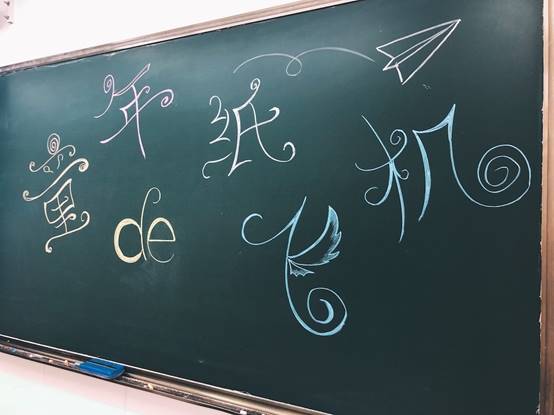 童年de纸飞机